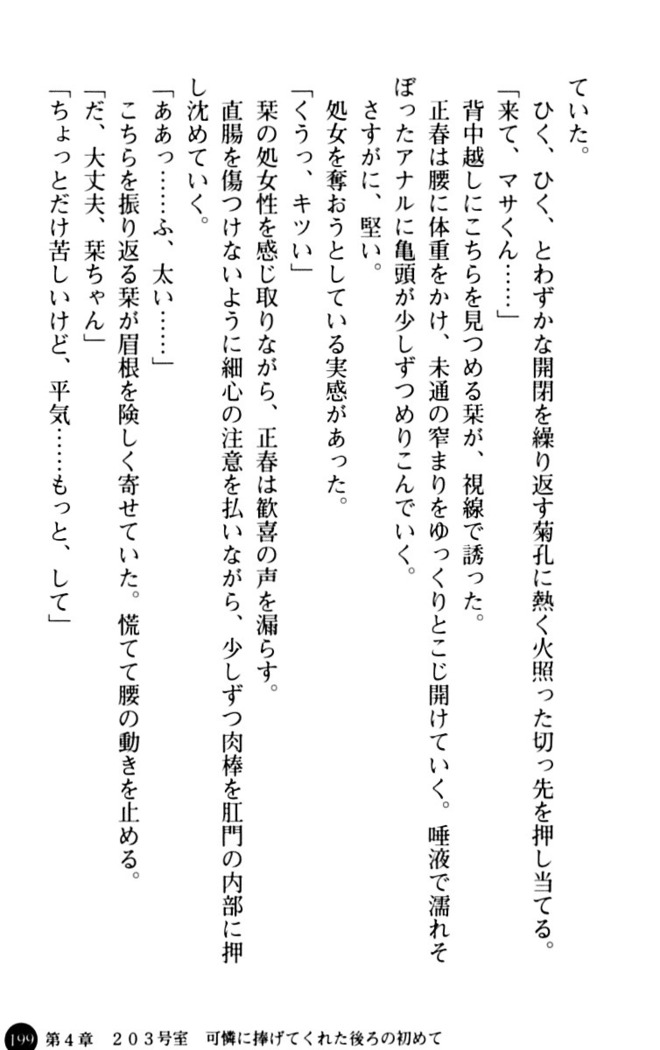 ていた。
ひく、ひく、とわずかな開閉を繰り返す菊孔に熱く火照った切っ先を押し当てる。
「来て、マサくん……」
背中越しにこちらを見つめる栞が、視線で誘った。
正春は腰に体重をかけ、未通の窄まりをゆっくりとこじ開けていく。唾液で濡れそ
ぼったアナルに亀頭が少しずつめりこんでいく。
さすがに、堅い。
処女を奪おうとしている実感があった。
「くうっ、キツい」
栞の処女性を感じ取りながら、正春は歓喜の声を漏らす。
直腸を傷つけないように細心の注意を払いながら、少しずつ肉棒を肛門の内部に押
し沈めていく。
「ああっ……ふ、太い……」
こちらを振り返る栞が眉根を険しく寄せていた。慌てて腰の動きを止める。
「だ、大丈夫、栞ちゃん」
「ちょっとだけ苦しいけど、平気……もっと、して」
199 第4章 203号室 可憐に捧げてくれた後ろの初めて